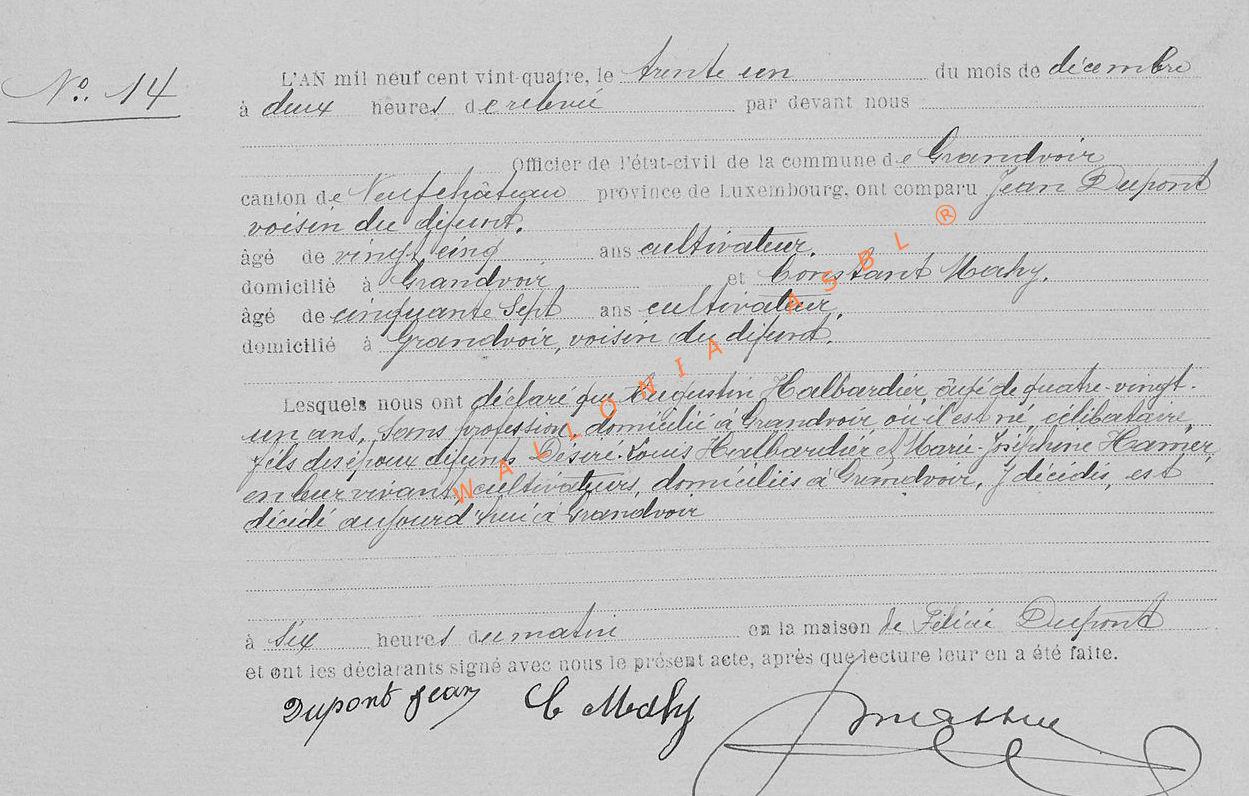 No. 14
L'AN mil neuf cent vint-quatre, le trente un du mois de décembre
à deux heures de relevée par devant nous
Officier de l'état-civil de la commune de Grandvoir
canton de Neufchâteau province de Luxembourg, ont comparu Jean Dupont
voisin du défunt.
âgé de vingt cinq ans cultivateur.
domicilié à Grandvoir et Constant Mahy,
âgé de cinquante sept ans cultivateur,
domicilié à Grandvoir, voisin du défunt.
Lesquels nous ont déclaré que Augustin Halbardier, âgé de quatre-vingt-
un ans, sans profession, domicilié à Grandvoir, où il est né, célibataire,
fils des époux défunts Désiré-Louis Halbardier et Marie-Joséphine Hamer,
en leur vivant cultivateurs, domiciliés à Grandvoir, y décédés, est
décédé aujourd'hui à Grandvoir
à six heures du matin en la maison de Félicie Dupont
et ont les déclarants signé avec nous le présent acte, après que lecture leur en a été faite.
Dupont Jean C Mahy
WALLONIA ASBL ®